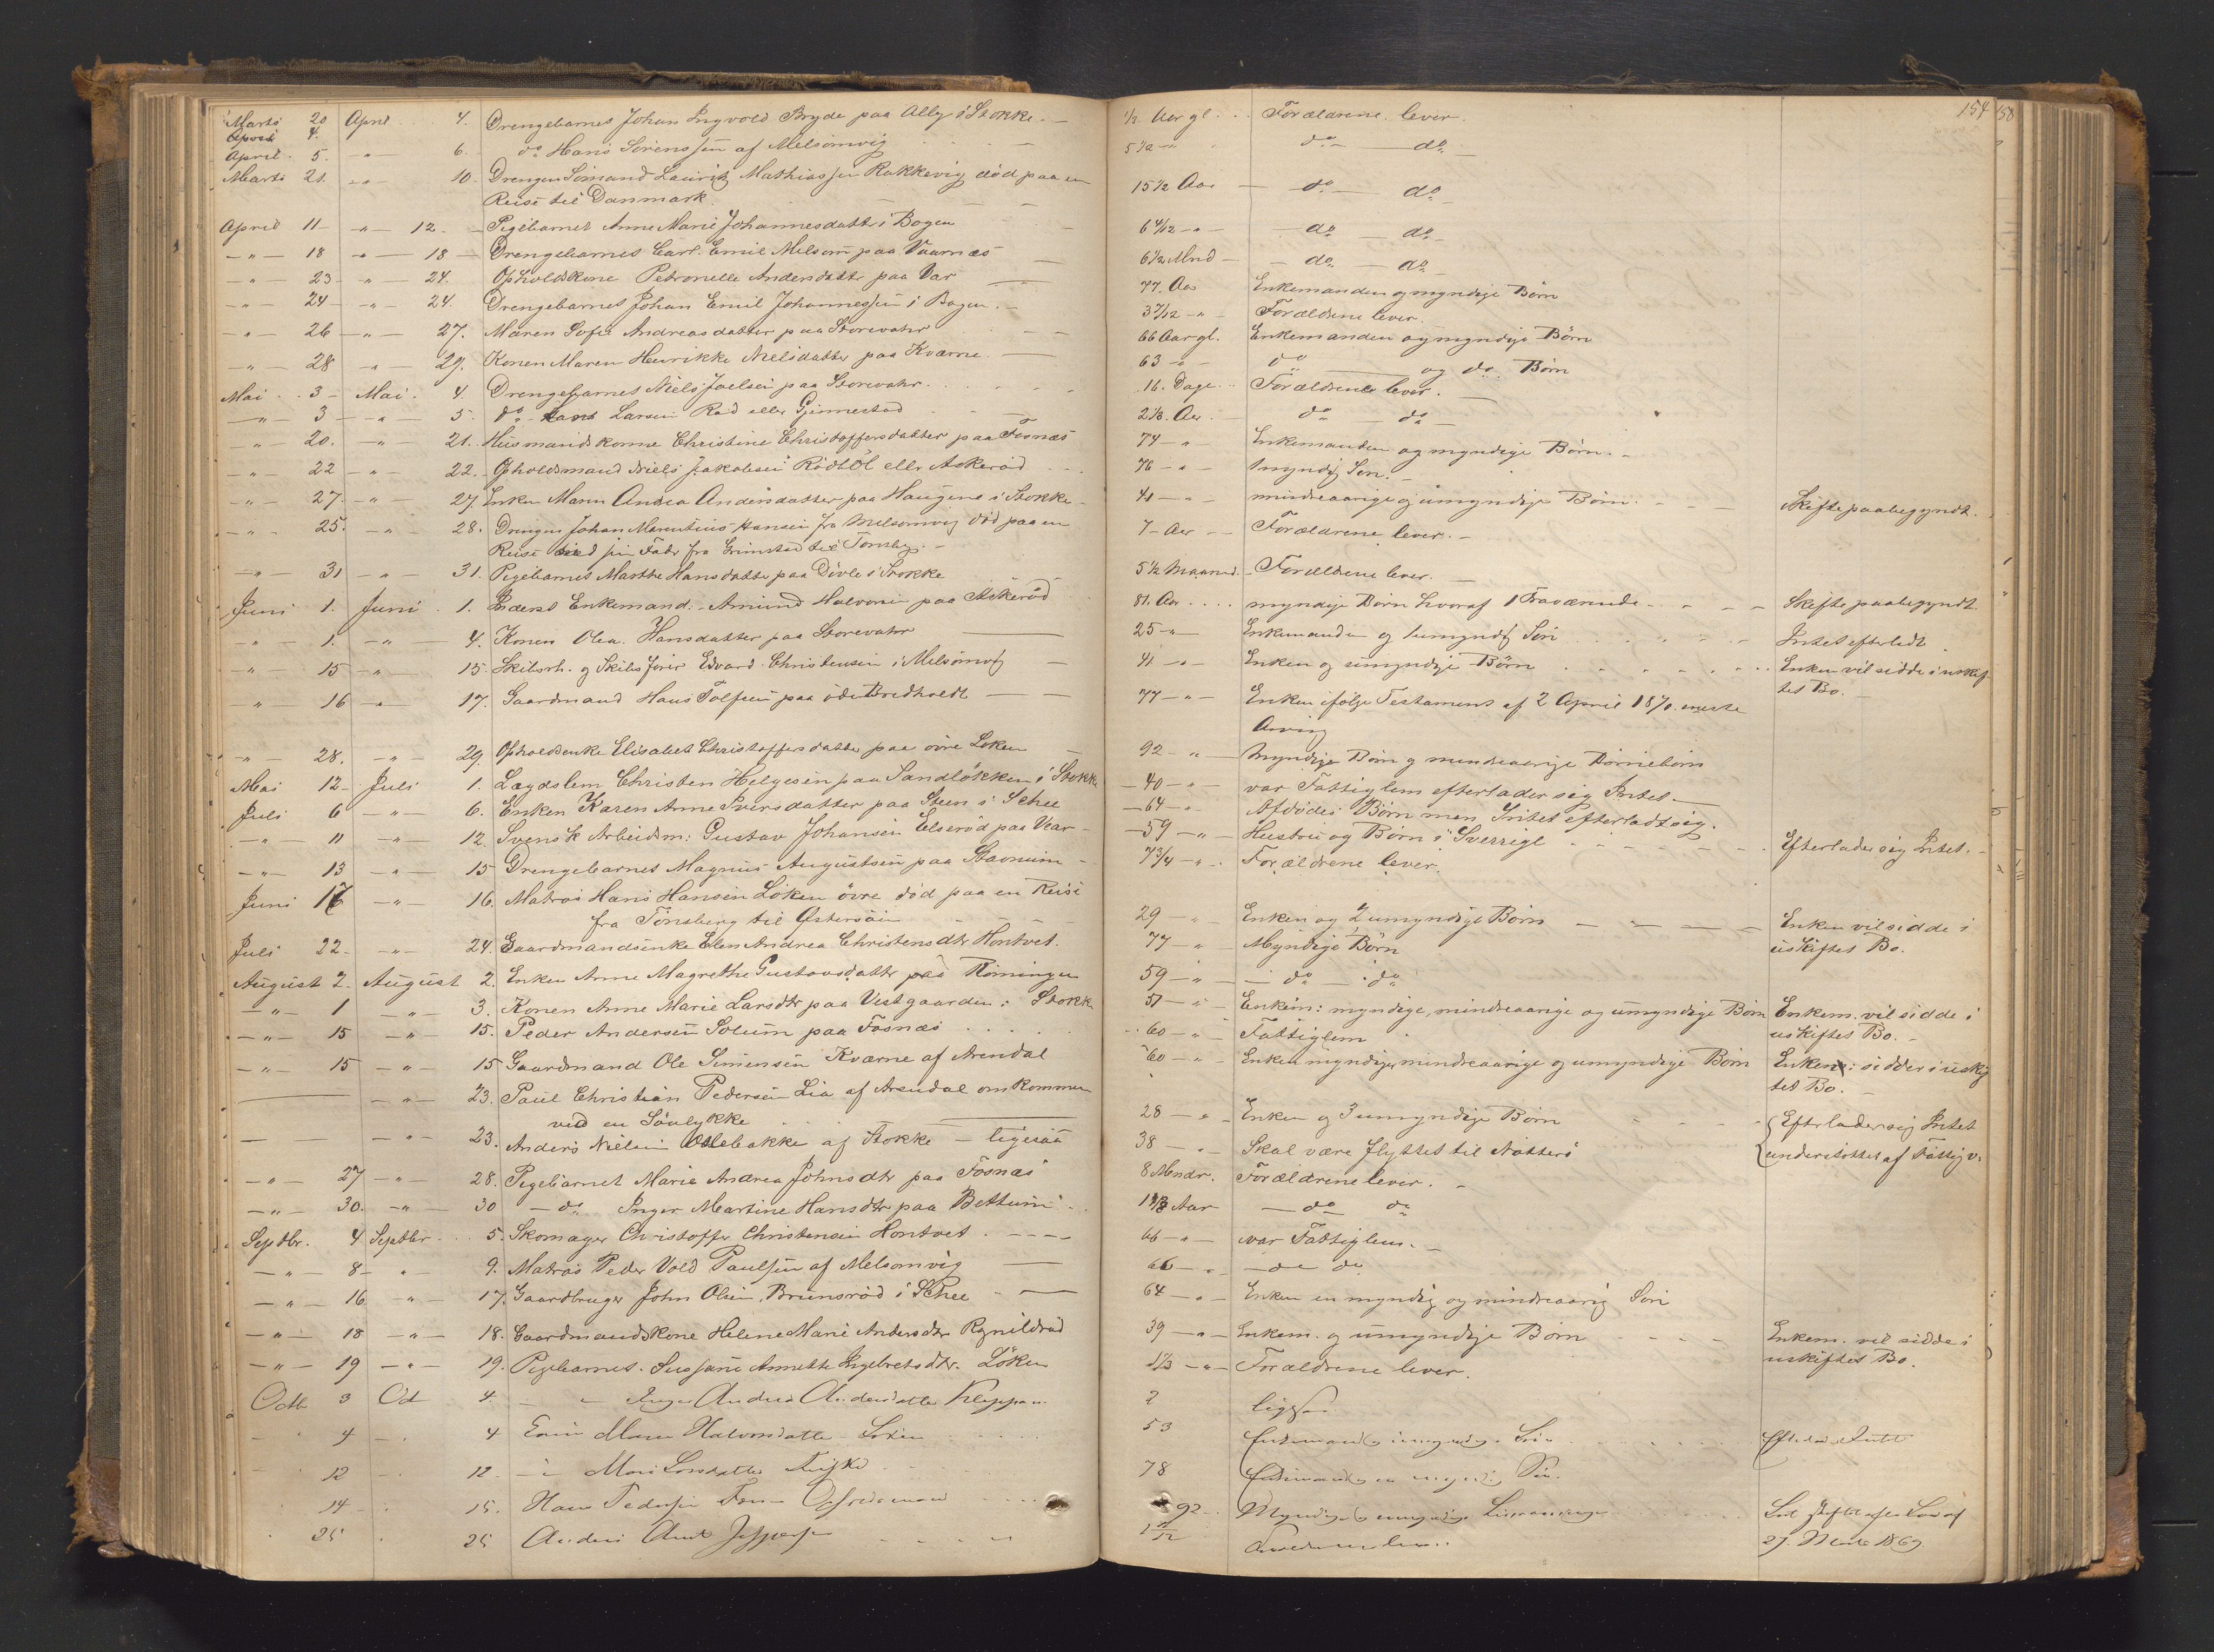 154 158
Marts 20 April 4. Drengebarnet Johan Ingvold Bryde paa Alby i Stokke. — 1/2 Aar gl. Forældrene lever.
April 4.
April 5. — " — 6. do Hans Sørenssen af Melsomvig 5 1/2 — " do — do —
Marts 21. — " — 10. Drengen Sømand Lauritz Mathiassen Rakkevig død paa en 15 1/2 Aar — do — do —
Reise til Danmark.
April 11 — " — 12. Pigebarnet Anne Marie Johannesdatter i Bogen 6 4/12 — " — do — do —
— " — 18 — " — 18 — Drengebarnet Carl Emil Melsom paa Vaarnæs 6 1/2 Mnd — do — do —
— " — 23 — " — 24. Opholdskone Petronelle Andersdatter paa Var 77. Aar Enkemanden og myndige Børn
— " — 24 — " — 24. Drengebarnet Johan Emil Johannessen i Bogen. 3 7/12 — " — Forældrene lever.
— " — 26 — " — 27. Maren Sofie Andreasdatter paa Storevahr 66 Aar gl. Enkemanden og myndige Børn
— " — 28 — " — 29. Konen Maren Henrikke Nielsdatter paa Kværne. 63 — " do og do. Børn
Mai 3 — Mai. 4. Drengebarnet Niels Joelsen paa Storevahr. 16. Dage Forældrene lever.
— " — 3 — " — 5. do Larsen Rød eller Gjennestad 2 1/3. Aar. do — do —
— " — 20. — " — 21. Husmandskonne Christine Christoffersdatter paa Fosnæs 74 — " Enkemanden og myndige Børn. —
— " — 22 — " — 22. Opholdsmand Niels Jakobsen Rødtøl eller Askerød 76 — " 1 myndig Søn. —
— " — 27. — " — 27. Enken Maren Andrea Andersdatter paa Haugene i Stokke 41 — " — mindreaarige og umyndige Børn. Skifte paabegyndt.
— " — 25. — " — 28. Drengen Johan Marentius Hansen fra Melsomvig død paa en 7 — Aar — Forældrene lever. —
Reise med sin Fader fra Grimstad til Tønsberg. —
— " — 31 — " — 31. Pigebarnet Marthe Hansdatter paa Døvle i Stokke 5 1/2 Maaned. — Forældrene lever.
Juni 1. Juni 1. Inderst Enkemand. Amund Halvorsen paa Askerød 81. Aar myndige Børn hvoraf 1 Fraværende. Skifte paabegyndt.
— " — 1. — " — 4. Konen Olea Hansdatter paa Storevahr 25 — " — Enkemanden og 1 umyndig Søn Intet efterladt
— " — 15 — " — 15. Skibsrh. og Skibsfører Edvard Christensen i Melsomvig 41 — " — Enken og umyndige Børn Enken vil sidde i uskif-
— " — 16 — " — 17. Gaardmand Hans Tolfsen paa øde Bredholdt 77 — " — Enken ifølge Testament af 2 April 1870 eneste tet Bo. —
Arving
— " — 28. — " — 29. Opholdsenke Elisabet Christoffersdatter paa øvre Løken 92 — " — Myndige Børn og mindreaarige Børnebørn
Mai 12 — Juli 1. Lægdslem Christen Helgesen paa Sandløkken i Stokke 40 — " — var Fattiglem efterlader sig Intet —
Juli 6 — " — 6. Enken Karen Anne Iversdatter paa Steen i Schee 64 — " — Afdødes Børn men Intet efterladt sig.
— " — 11 — " — 12. Svensk Arbeidsm: Gustav Johansen Elserød paa Vear 59 — " — Hustru og Børn i Sverrige Efterlader sig Intet. —
— " — 13 — " — 15 Drengebarnet Magnus Augustsen paa Stavnum 7 3/4 — " — Forældrene lever.
Juni 17 — " — 16. Matros Hans Hansen Løken øvre død paa en Reise 29 — " — Enken og 2 umyndige Børn Enken vil sidde i
fra Tønsberg til Østersøen uskiftet Bo.
Juli 22. — " — 24. Gaardmandsenke Elen Andrea Christensdtr Hontvet. 77 — " Myndige Børn
August 2. August 2. Enken Anne Magrethe Gustavsdatter paa Rømingen 59 — " — do — do
— " — 1 — " — 3. Konen Anne Marie Larsdtr paa Vestgaarden i Stokke 51 — " — Enkem: myndige, mindreaarige og umyndige Børn Enkem. vil sidde i
— " — 15 — " — 15. Peder Andersen Solum paa Fosnæs 60 — " Fattiglem uskiftet Bo. —
— " — 15 — " — 15 Gaardmand Ole Simensen Kværne af Arendal 60 — " — Enken myndige, mindreaarige og umyndige Børn Enken: sidder i uskif-
tet Bo. —
— " — 23. Paul Christian Pedersen Lia af Arendal omkommen 28 — " — Enken og 3 umyndige Børn Efterlader sig Intet
ved en Søulykke
— " — 23. Anders Nielsen Oslebakke af Stokke — ligesaa 38 — Skal være flyttet til Nøtterö understøttet af Fattigv.
— " — 27 — " — 28. Pigebarnet Marie Andrea Johnsdtr paa Fosnæs 8 Mndr. Forældrene lever. —
— " — 30. — " — 30 — do Inger Martine Hansdtr paa Bettum Aar — do do
Septbr. 4 Septbr 5. Skomager Christoffer Christensen Hontvet 66 — " — var Fattiglem. —
— " — 8 — " 9. Matros Peder Vold Paulsen af Melsomvig 66 — " — do do
— " — 16 — " — 17. Gaardbruger John Olsen, Brunsrød i Schee 64 — " — Enken en myndig og mindreaarig Søn
— " — 18 — " — 18. Gaardmandskone Helene Marie Andersdtr Rgnildrød 39 — " — Enkem. og umyndige Børn Enkem. vil sidde i
— " — 19 — " — 19. Pigebarnet. Sussane Annette Ingebretsdtr. Løken 1 1/3 — " — Forældrene lever. uskiftet Bo.
Octb 3 Oct 4. — " — Inger Andrea Andersdatter Kleppan 2 ligesaa
4 — 4 Maren Halvorsdatter Løken 53 Enkemand Søn Intet
12 — 12 — Mari Larsdatter 78 Enkemand Søn.
14 — 15. Hans Pedersen 92 Myndige
25 25 Anders Jespersen 1 /12 27. 1869